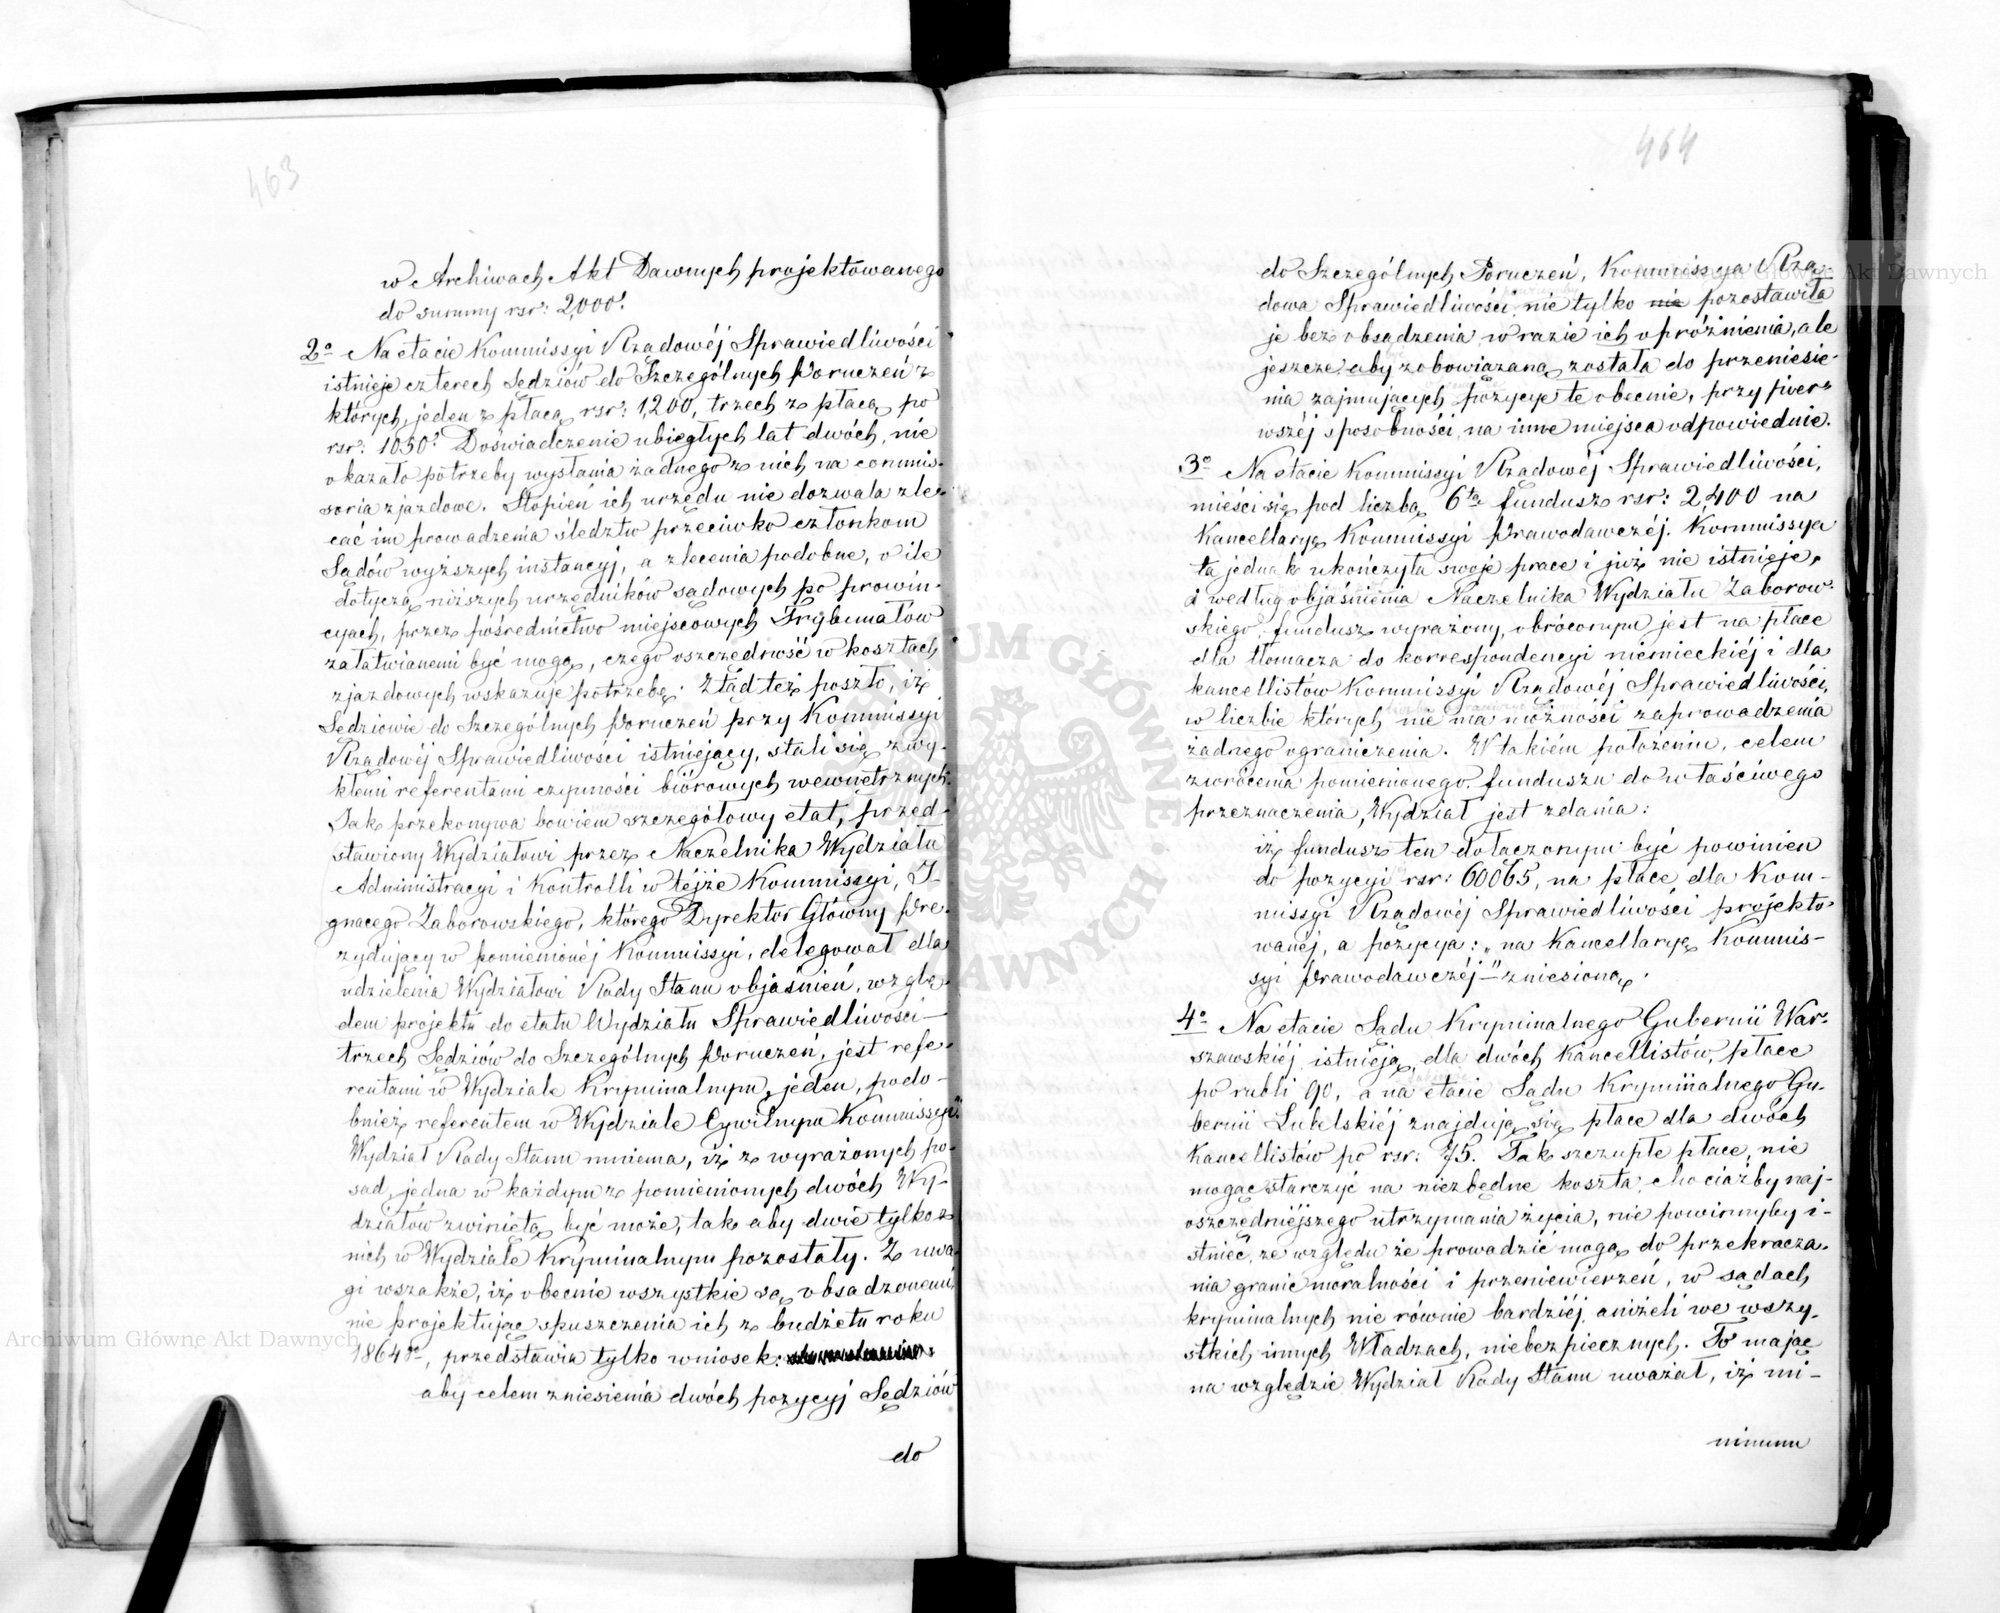 463
w Archiwach Akt Dawnych projektowanego
do summy rsr: 2,000.
2o Na etacie Kommissyi Rządowéj Sprawiedliwości
istnieje czterech Sędziów do Szczególnych Poruczeń z
których, jeden z płacą rsr: 1,200, trzech z płacą po
rsr: 1050. Doświadczenie ubiegłych lat dwóch, nie
okazało potrzeby wysłania żadnego z nich na commis-
soria zjazdowe. Stopień ich urzędu nie dozwala zle-
cać im prowadzenia śledztw przeciwko członkom
Sądów wyższych instancyj, a zlecenia podobne, o ile
dotyczą niższych urzędników sądowych po prowin-
cyach, przez pośrednictwo miejscowych Trybunałów
załatwianemi być mogą, czego oszczędność w kosztach
zjazdowych wskazuje potrzebę. Ztąd też poszło, iż
Sędziowie do Szczególnych Poruczeń przy Kommissyi
Rządowéj Sprawiedliwości istniejący, stali się zwy-
kłemi referentami czynności biórowych wewnętrznych.
Jak przekonywa bowiem szczegółowy etat, przed-
stawiony Wydziałowi przez Naczelnika Wydziału
Administracyi i Kontrolli w téjże Kommissyi, I-
gnacego Zaborowskiego, którego Dyrektor Główny Pre-
zydujący w pomienionéj Kommissyi, delegował dla
udzielenia Wydziałowi Rady Stanu objaśnień, wzglę-
dem projektu do etatu Wydziału Sprawiedliwości –
trzech Sędziów do Szczególnych Poruczeń, jest refe-
rentami w Wydziale Kryminalnym, jeden, podo-
bnież referentem w Wydziale Cywilnym Kommissyi.
Wydział Rady Stanu mniema, iż z wyrażonych po-
sad, jedna w każdym z pomienionych dwóch Wy-
działów zwiniętą być może, tak aby dwie tylko z
nich w Wydziale Kryminalnym pozostały. Z uwa-
gi wszakże, iż obecnie wszystkie są obsadzonemi,
nie projektując spuszczenia ich z budżetu roku
1864go, przedstawia tylko wniosek:
aby celem zniesienia dwóch pozycyj Sędziów
do
464
do Szczególnych Poruczeń, Kommissya Rzą-
dowa Sprawiedliwości, nie tylko nie pozostawiła
je bez obsadzenia w razie ich opróżnienia, ale
jeszcze aby zobowiązaną została do przeniesie-
nia zajmujących pozycye te obecnie, przy pier-
wszéj sposobności, na inne miejsca odpowiednie.
3o Na etacie Kommissyi Rządowéj Sprawiedliwości,
mieści się pod liczbą 6tą fundusz rsr: 2,400 na
Kancellaryę Kommissyi Prawodawczéj. Kommissya
ta jednak ukończyła swoje prace i już nie istnieje,
a według objaśnienia Naczelnika Wydziału Zaborow-
skiego, fundusz wyrażony, obróconym jest na płace
dla tłomacza do korrespondencyi niemieckiéj i dla
kancellistów Kommissyi Rządowéj Sprawiedliwości,
w liczbie których nie ma możności zaprowadzenia
żadnego ograniczenia. W takiém położeniu, celem
zwrócenia pomienionego funduszu do właściwego
przeznaczenia, Wydział jest zdania:
iż fundusz ten dołączonym być powinien
do pozycyi rsr: 60065, na płace dla Kom-
missyi Rządowéj Sprawiedliwości projekto-
wanéj, a pozycya: „na Kancellaryę Kommis-
syi Prawodawczéj –" zniesioną.
4o Na etacie Sądu Kryminalnego Gubernii War-
szawskiéj istnieją, dla dwóch Kancellistów, płace
po rubli 90, a na etacie Sądu Kryminalnego Gu-
bernii Lubelskiéj znajdują się płace dla dwóch
Kancellistów po rsr: 75. Tak szczupłe płace, nie
mogąc starczyć na niezbędne koszta, chociażby naj-
oszczędniejszego utrzymania życia, nie powinnyby i-
stnieć, ze względu że prowadzić mogą do przekracza-
nia granic moralności i przeniewierzeń, w sądach
kryminalnych nie równie bardziéj, aniżeli we wszy-
stkich innych Władzach, niebezpiecznych. To mając
na względzie Wydział Rady Stanu uważał, iż mi-
nimum
ARCHIWUM GŁÓWNE AKT DAWNYCH
Archiwum Główne Akt Dawnych
Archiwum Główne Akt Dawnych